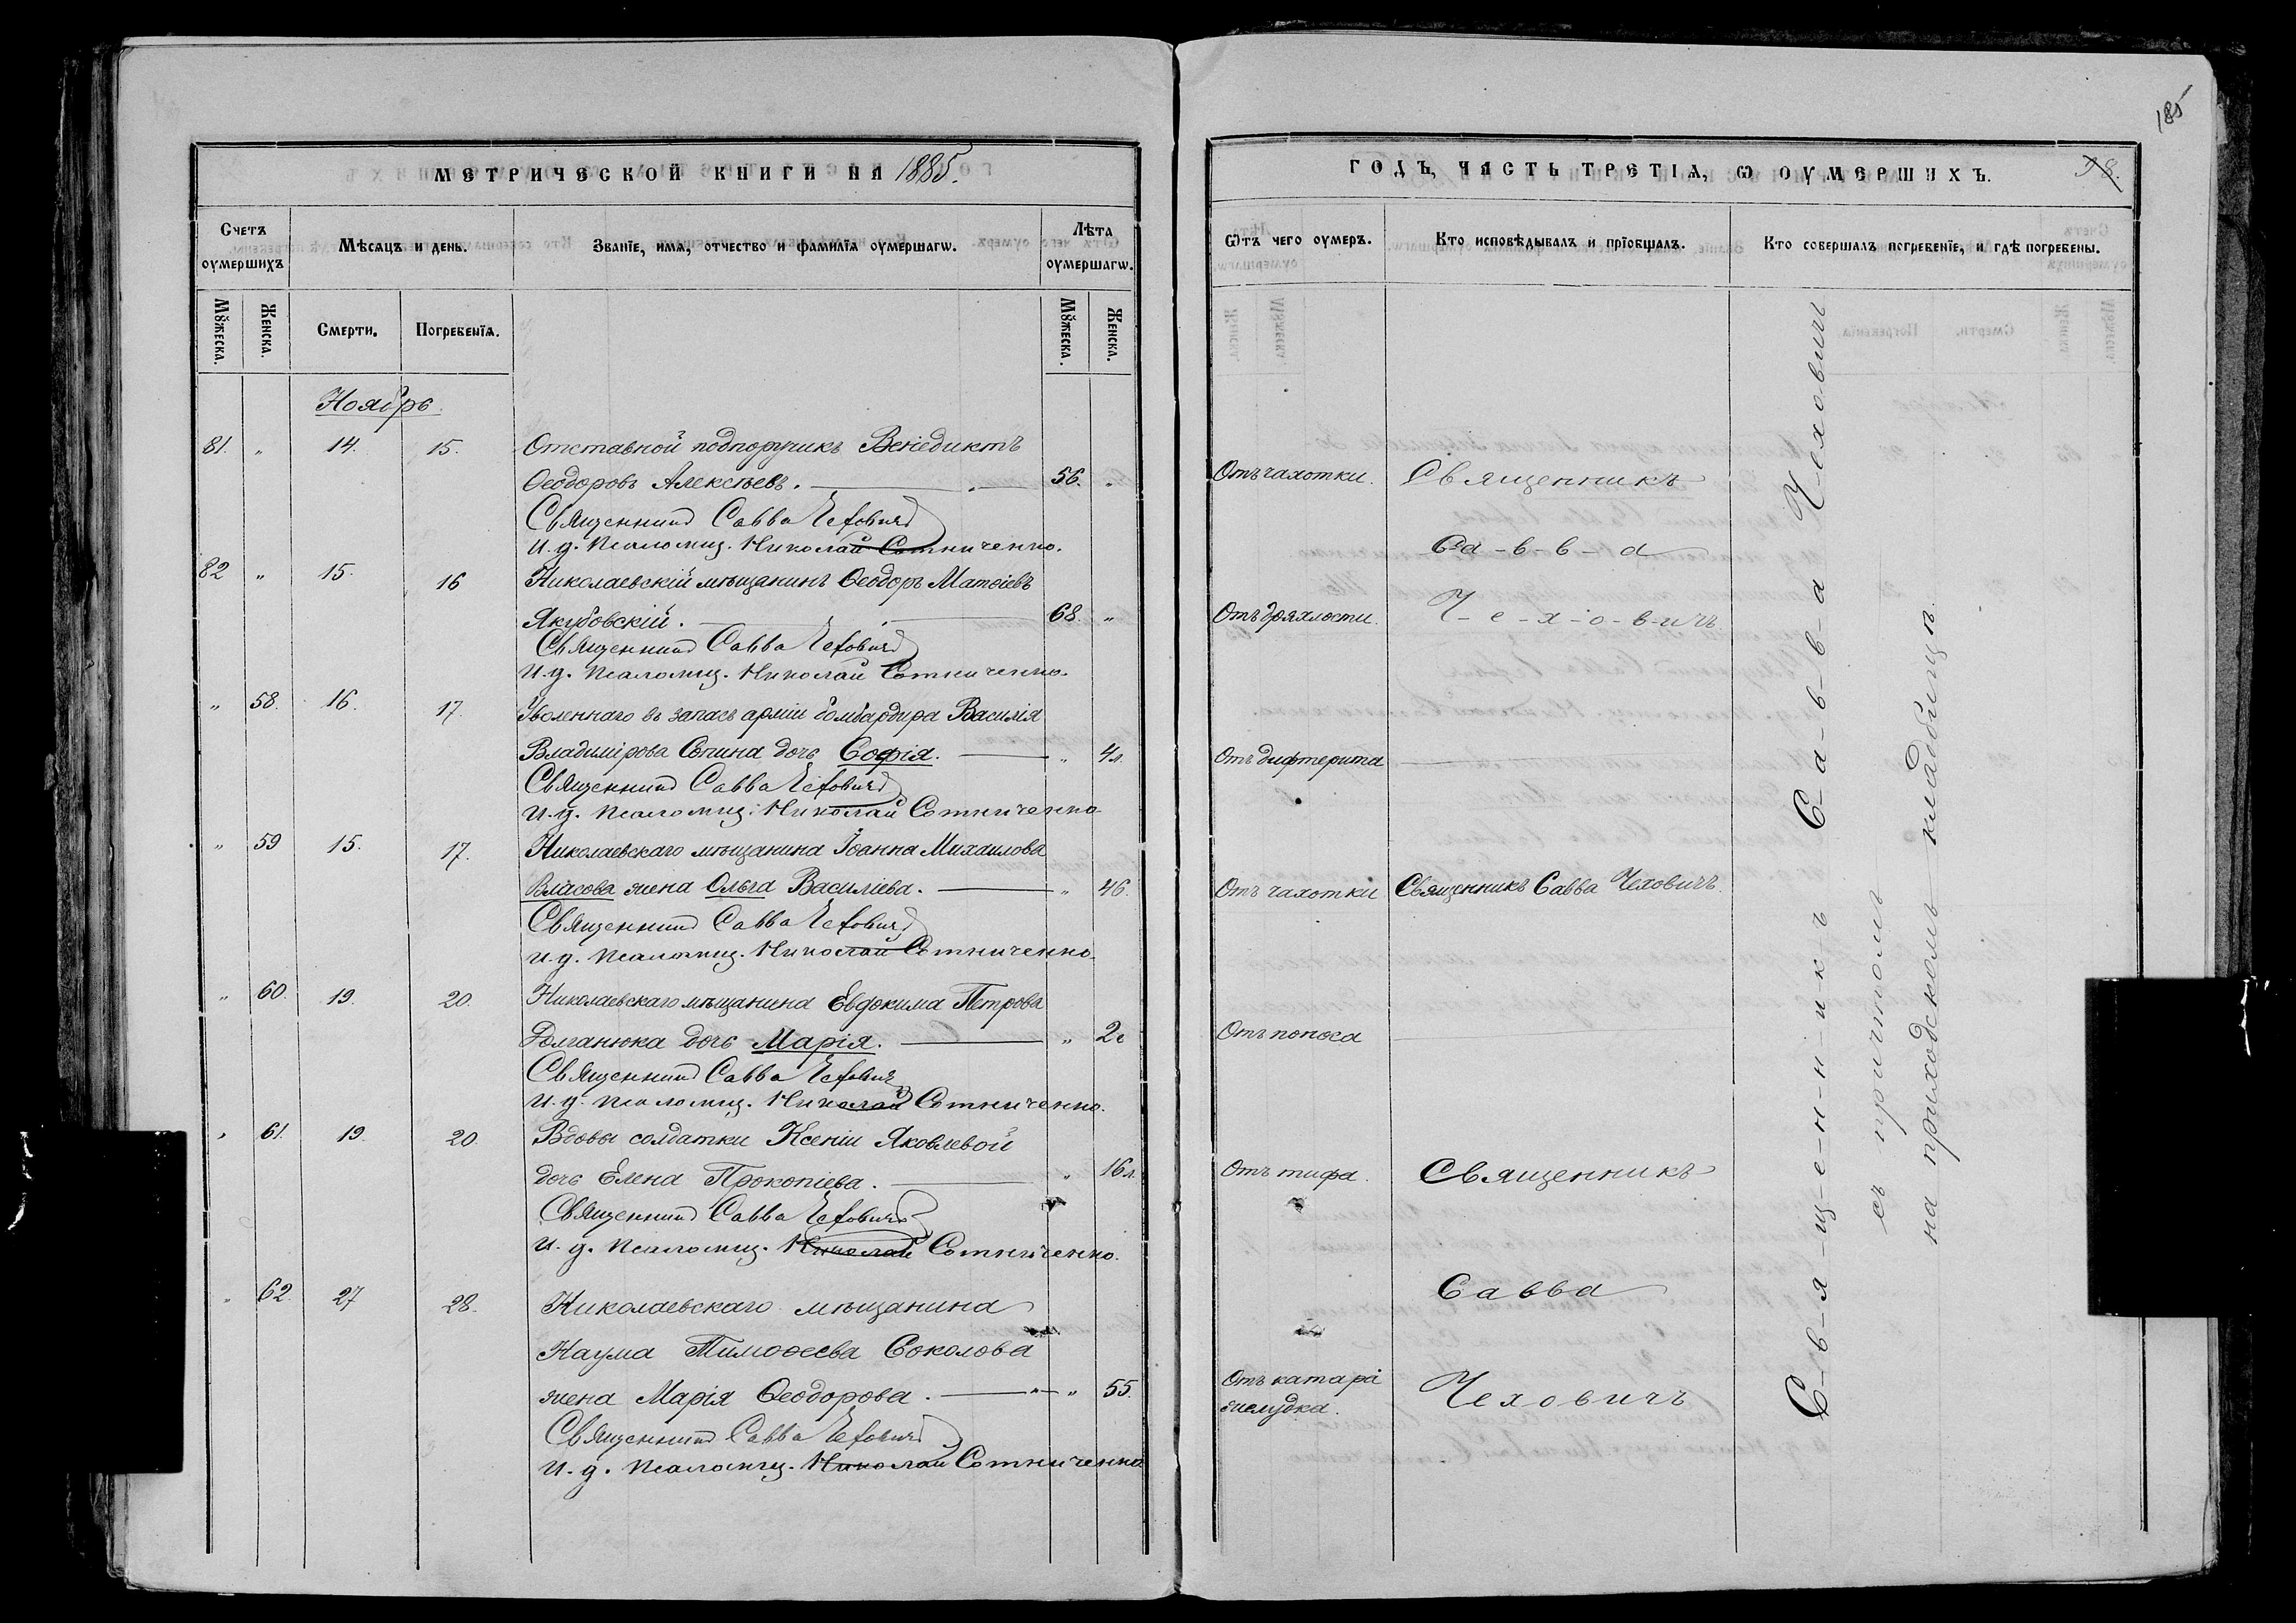 185
МЕТРИЧЕСКОЙ КНИГИ НА 1885.
Счетъ оумершихъ
Мѣсяцъ и день.
Званїе, имя, отчество и фамилїя оумершагѡ.
Лѣта оумершагѡ.
Мꙋжеска.
Женска.
Смерти.
Погребенїя.
Мꙋжеска.
Женска.
Ноябрь.
81. „ 14. 15. Отставной подпоручикъ Венедиктъ
Ѳеодоровъ Алексѣевъ. 56. „
Священникъ Савва Чеховичъ
И. д. Псаломщ. Николай Сотниченко.
82 „ 15. 16 Николаевскій мѣщанинъ Ѳеодоръ Матѳіевъ
Якубовскій. 68. „
Священникъ Савва Чеховичъ
И. д. Псаломщ. Николай Сотниченко.
„ 58. 16. 17. Уволеннаго въ запасъ арміи бомбардира Василія
Владимірова Сопина дочь Софія. „ 4л.
Священникъ Савва Чеховичъ
И. д. Псаломщ. Николай Сотниченко
„ 59 15. 17. Николаевскаго мѣщанина Іоанна Михаилова
Власова жена Ольга Василіева. „ 46.
Священникъ Савва Чеховичъ
И. д. Псаломщ. Николай Сотниченко.
„ 60. 19. 20. Николаевскаго мѣщанина Евдокима Петрова
Долганюка дочь Марія. „ 2г
Священникъ Савва Чеховичъ
И. д. Псаломщ. Николай Сотниченко.
„ 61. 19. 20 Вдовы солдатки Ксеніи Яковлевой
дочь Елена Прокопіева. „ 16л.
Священникъ Савва Чеховичъ
И. д. Псаломщ. Николай Сотниченко.
„ 62. 27 28. Николаевскаго мѣщанина
Наума Тимоѳеева Соколова
жена Марія Ѳеодорова. „ 55.
Священникъ Савва Чеховичъ
И. д. Псаломщ. Николай Сотниченко
ГОДЪ, ЧАСТЬ ТРЕТІЯ, Ѡ ОУМЕРШИХЪ.
98.
Ѿтъ чего оумеръ.
Кто исповѣдывалъ и прїобщалъ.
Кто совершалъ погребенїе, и гдѣ погребены.
Отъ чахотки. Священникъ
Са-в-в-а
Отъ дряхлости. Ч-е-х-о-в-ичъ.
Отъ дифтерита
Отъ чахотки Священникъ Савва Чеховичъ.
Отъ поноса
Отъ тифа. Священникъ
Савва
Отъ катара
желудка. Чеховичъ
С-в-я-щ-е-н-н-и-к-ъ С-а-в-в-а Чеховичъ
съ причтомъ
на приходскомъ кладбищѣ.